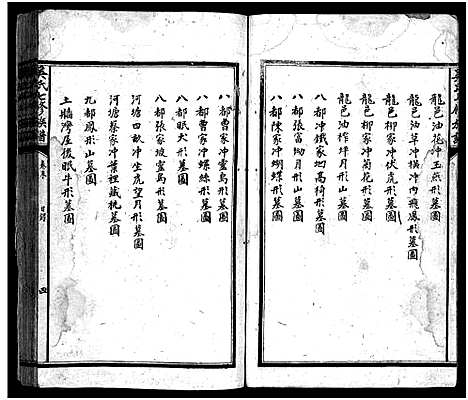 龍邑油花冲玉燕形墓圖
龍邑油草冲橫冲內飛鳳形墓圖
龍邑柳家冲伏虎形墓圖
八都柳家冲菊花形墓圖
龍邑油榨坪月形山墓圖
八都冲鐵家坳高椅形墓圖
八都張富坳月形山墓圖
八都陳家冲蝴蝶形墓圖
八都曹家冲螺絲形墓圖
八都曹家冲靈鳥形墓圖
八都張家坡靈鳥形墓圖
八都眠犬形墓圖
河塘四畝冲坐虎望月形墓圖
河塘蔡家冲葉裡藏桃墓圖
九都鳳形山墓圖
土牆灣屋後眠牛形墓圖
吳氏七修族譜
卷
目錄
四